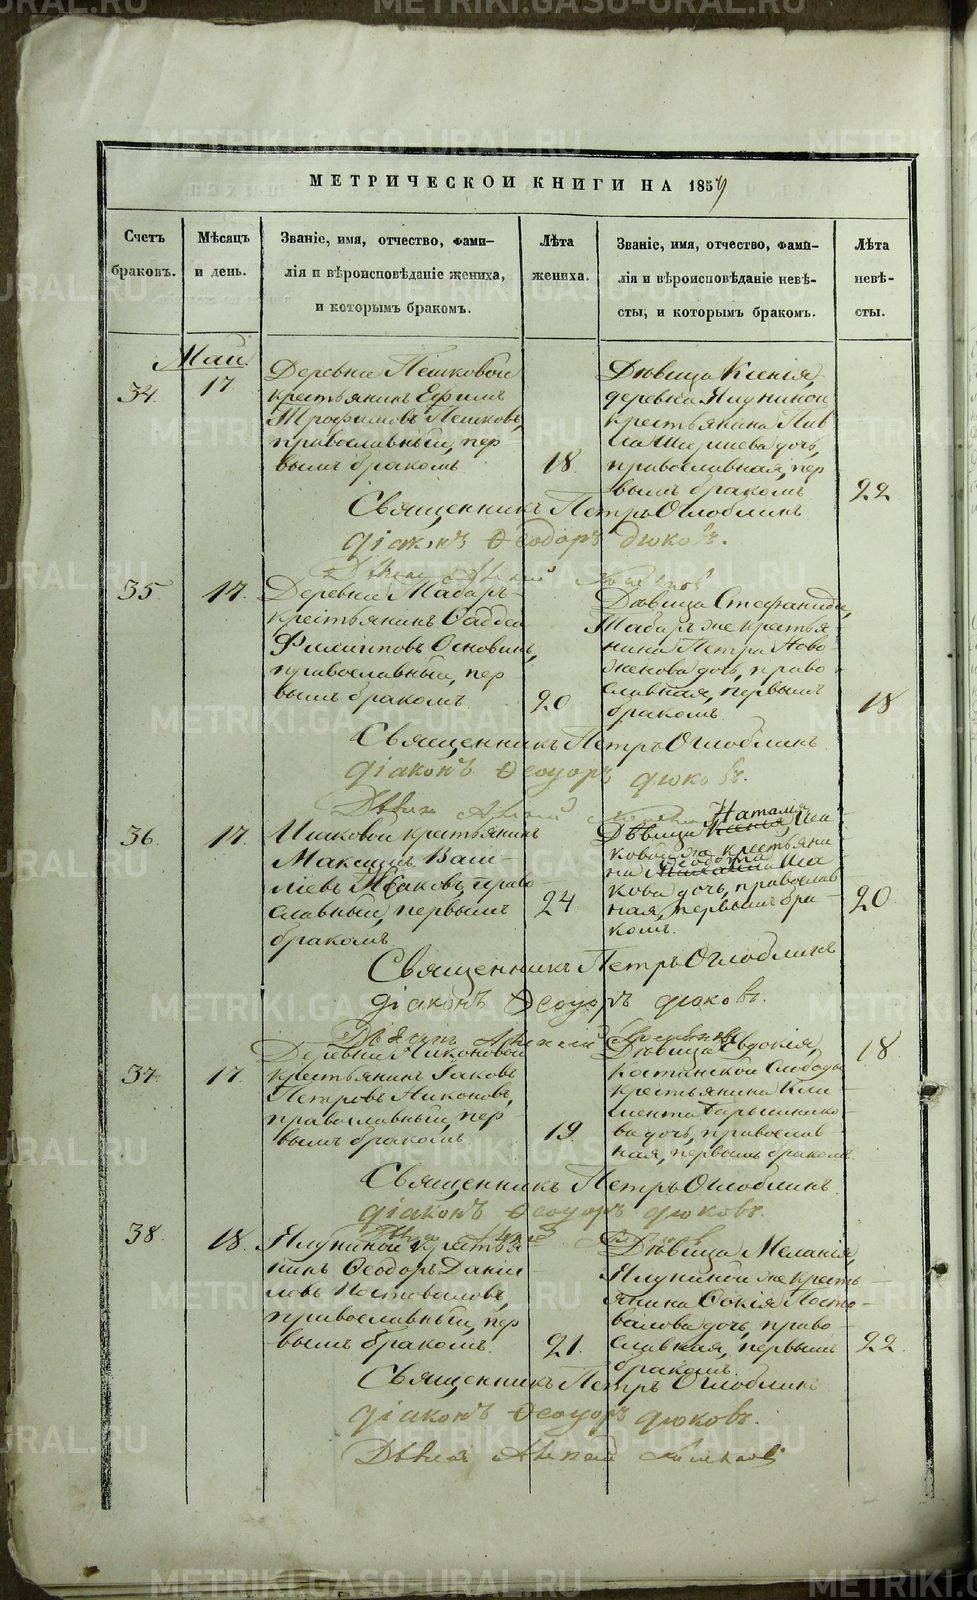 МЕТРИЧЕСКОЙ КНИГИ НА 1859
Счетъ браковъ.
Мѣсяцъ и день.
Званіе, имя, отчество, фами-
лія и вѣроисповѣданіе жениха,
и которымъ бракомъ.
Лѣта жениха.
Званіе, имя, отчество, фами-
лія и вѣроисповѣданіе невѣ-
сты, и которымъ бракомъ.
Лѣта невѣ-
сты.
Май
34.
17
Деревни Пѣшковой
крестьянинъ Ефимъ
Трофимовъ Пешковъ,
православный, пер
вымъ бракомъ
18.
Дѣвица Ксенія,
деревни Ялуниной
крестьянина
дочь,
православная, пер
вымъ бракомъ
22
Священникъ Петръ Оглоблинъ
діаконъ Ѳеодоръ Дюковъ.
35
17.
Деревни Табаръ
крестьянинъ Фаддей
Филипповъ Основинъ,
православный, пер
вымъ бракомъ
20
Дѣвица Стефанида,
Табаръ же крестья-
нина Петра Ново-
женова дочь, право
славная, первымъ
бракомъ.
18
Священникъ Петръ Оглоблинъ
діаконъ Ѳеодоръ Дюковъ.
36
17.
Исаковой крестьянинъ
Максимъ Васи-
ліевъ Исаковъ, право
славный, первымъ
бракомъ
24
Наталія
Дѣвица Ксенія, Иса
ковой же крестьяни
Ѳеодота
на Михаила Иса
кова дочь, православ
ная, первымъ бра-
комъ.
20
Священникъ Петръ Оглоблинъ
діаконъ Ѳеодоръ Дюковъ.
37
17.
Деревни Никоновой
крестьянинъ Іаковъ
Петровъ Никоновъ,
православный, пер-
вымъ бракомъ.
19.
Дѣвица Евдокія,
Слободы
крестьянина Кли
мента Барышнико
ва дочь, православ
ная, первымъ бракомъ
18
Священникъ Петръ Оглоблинъ.
діаконъ Ѳеодоръ Дюковъ.
38
18.
Ялуниной крестья
нинъ Ѳеодоръ Даніи
ловъ Постоваловъ,
православный, пер
вымъ бракомъ.
21.
Дѣвица Меланія,
Ялуниной же кресть-
янина Посто-
валова дочь, право-
славная, первымъ
бракомъ.
22.
Священникъ Петръ Оглоблинъ
діаконъ Ѳеодоръ Дюковъ.
METRIKI.GASO-URAL.RU